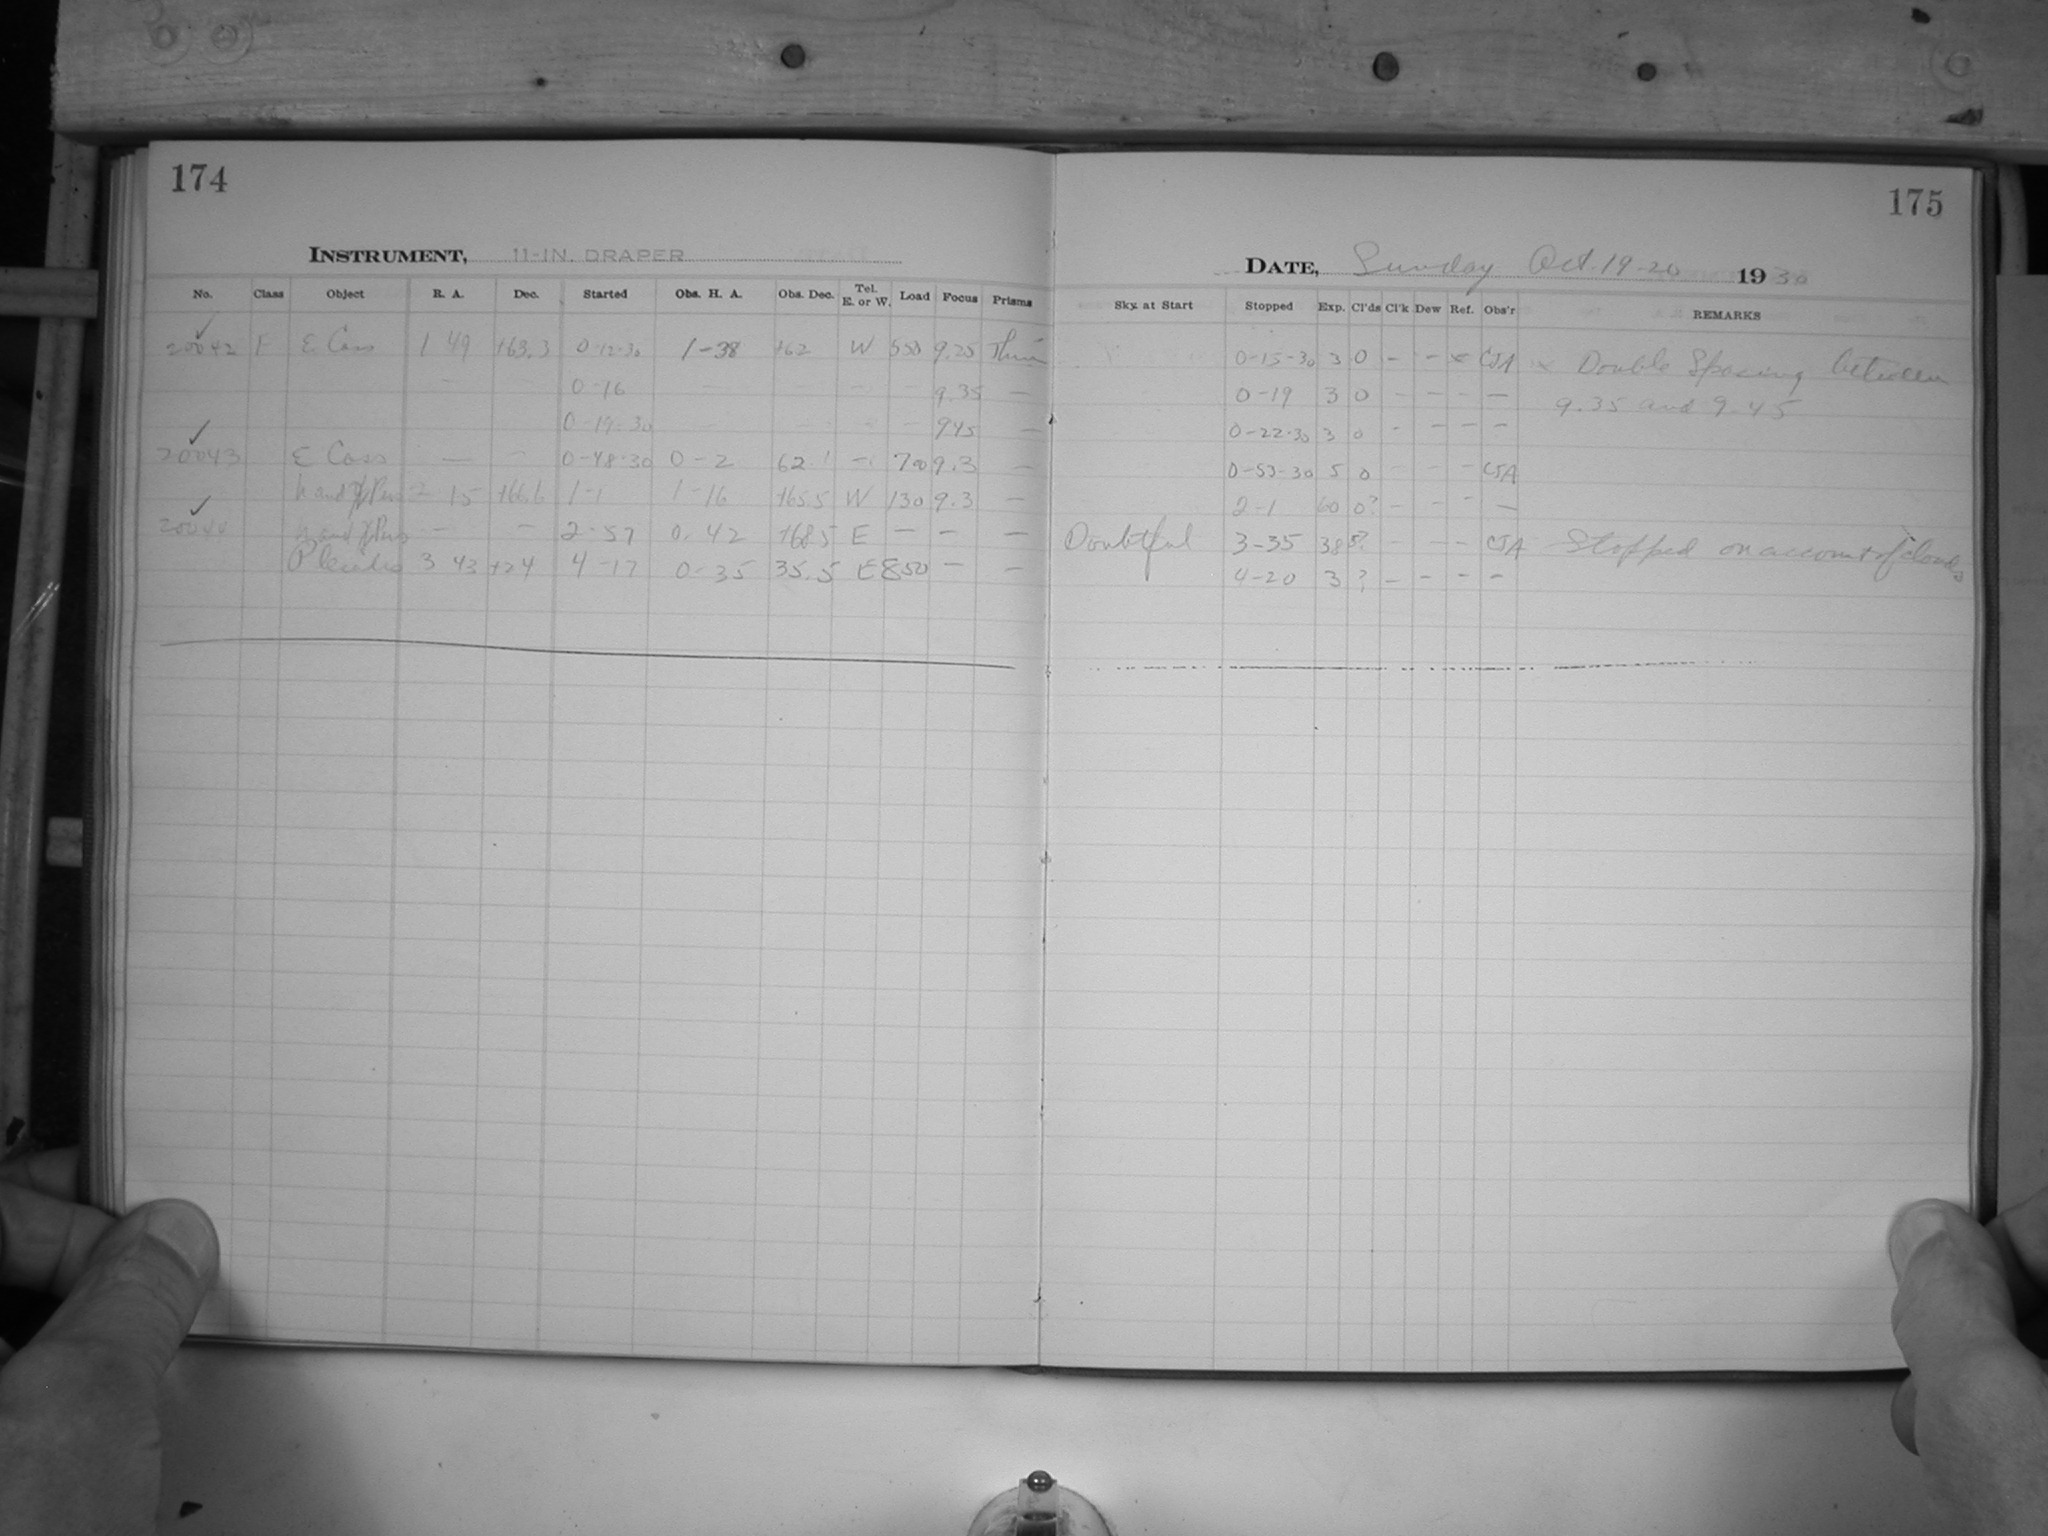 174
INSTRUMENT, 11-IN. DRAPER
No. Class Object R. A. Dec. Started Obs. H. A. Obs. Dec. Tel. E. or W. Load Focus Prisms
20042 F E Cass 1 49 +63.3 0-12-30 1-38 +62 W 550 9.25
— — 0-16 — — 9.35 —
0-19-30 — — — — 945 —
20043 E Cass — — 0-48-30 0-2 62.1 — 700 9.3 —
h and χ Pers 2 15 +66.6 1-1 1-16 +65.5 W 130 9.3 —
h and χ Pers — — 2-57 0-42 +68.5 E — — —
3 43 +24 4-17 0-35 35.5 E 850 — —
175
DATE, Sunday Oct. 19-20 1930
Sky. at Start Stopped Exp. Cl'ds Cl'k Dew Ref. Obs'r REMARKS
0-15-30 3 0 — — × CJA × Double Spacing between
0-19 3 0 — — — — 9.35 and 9.45
0-22-30 3 0 — — — —
0-53-30 5 0 — — — CJA
2-1 60 0? — — — —
Doubtful 3-35 38 5? — — — CJA Stopped on account of clouds
4-20 3 ? — — — —